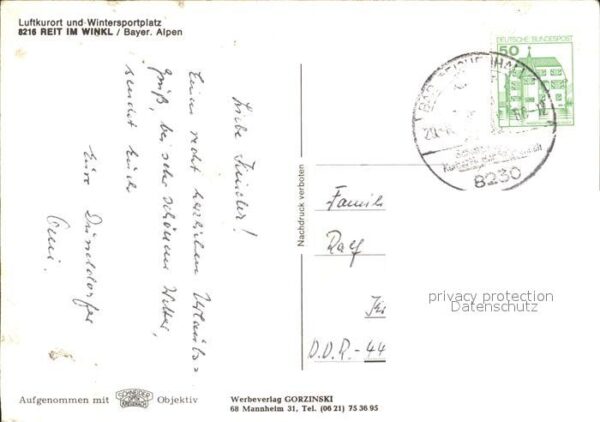 Luftkurort und Wintersportplatz
8216 REIT IM WINKL / Bayer. Alpen
Liebe Kinder!
Einen recht herzlichen Urlaubs=
gruß, bei sehr schönem Wetter,
sendet Euch
Eure Dünndorfer
Omi.
Nachdruck verboten
DEUTSCHE BUNDESPOST
50
8230
Famili
Ralf
D.D.R.-44
privacy protection
Datenschutz
Aufgenommen mit SCHNEIDER KREUZNACH Objektiv
Werbeverlag GORZINSKI
68 Mannheim 31, Tel. (06 21) 75 36 95